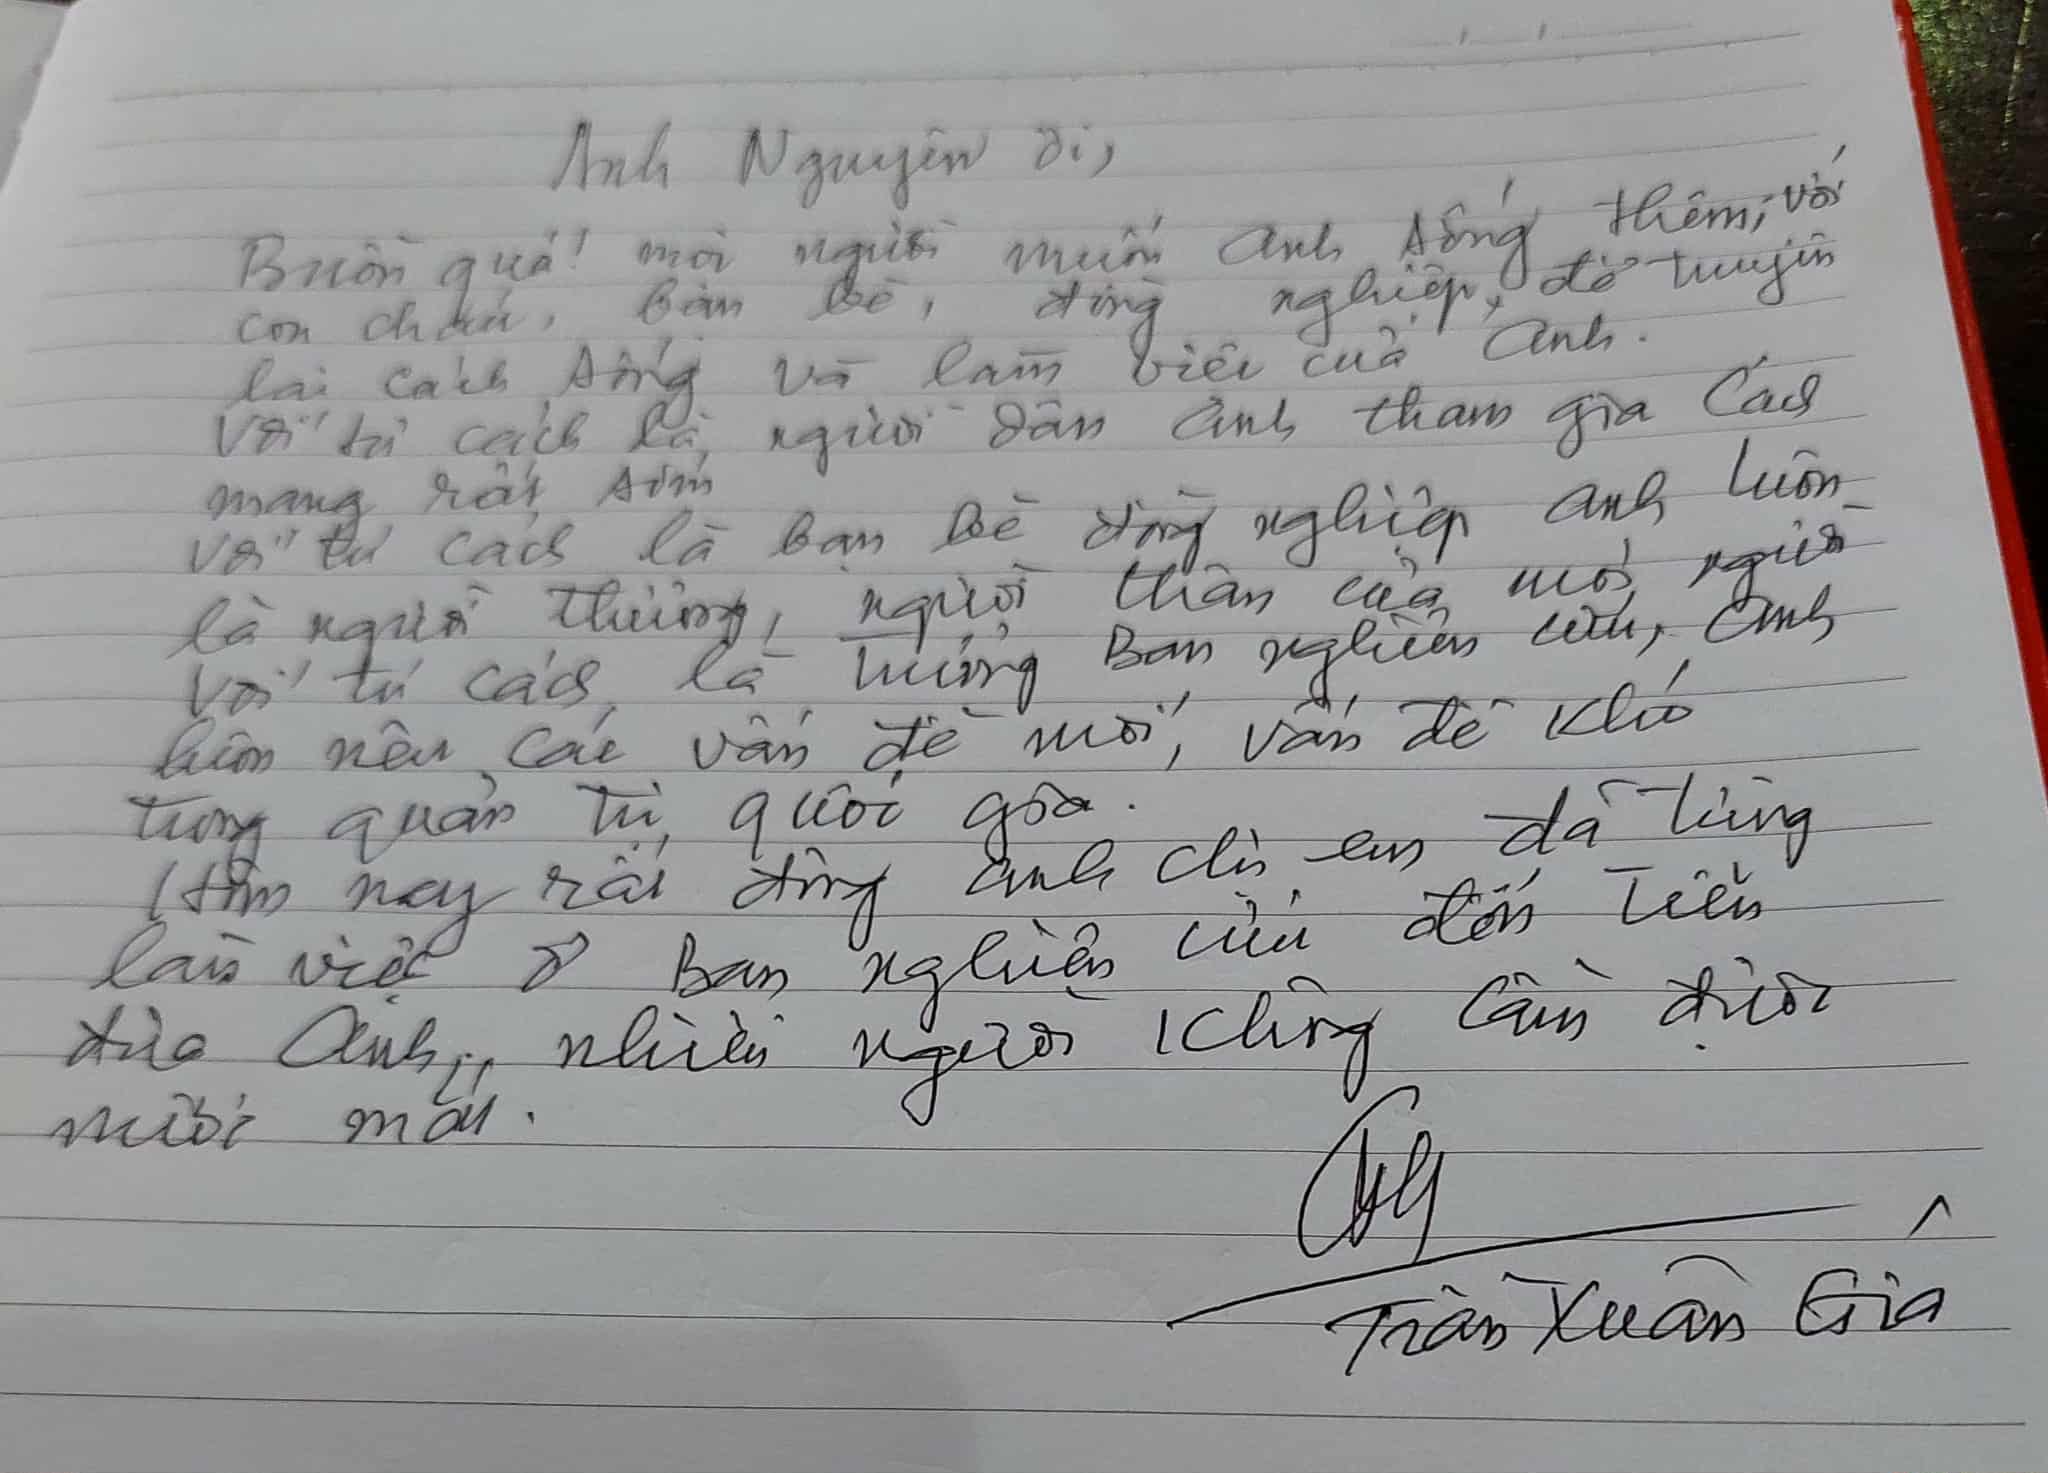 Anh Nguyên ơi,
Buồn quá! mọi người muốn anh sống thêm, với
con cháu, bạn bè, đồng nghiệp, để truyền
lại cách sống và làm việc của anh.
Với tư cách là người dân anh tham gia Cách
mạng rất sớm
Với tư cách là bạn bè đồng nghiệp anh luôn
là người thương, người thân của mọi người
Với tư cách là trưởng Ban nghiên cứu, anh
luôn nêu các vấn đề mới, vấn đề khó
trong quản trị quốc gia.
Hôm nay rất đông anh chị em đã từng
làm việc ở Ban nghiên cứu đến tiễn
đưa Anh, nhiều người không cầm được
nước mắt.
Trần Xuân Giá